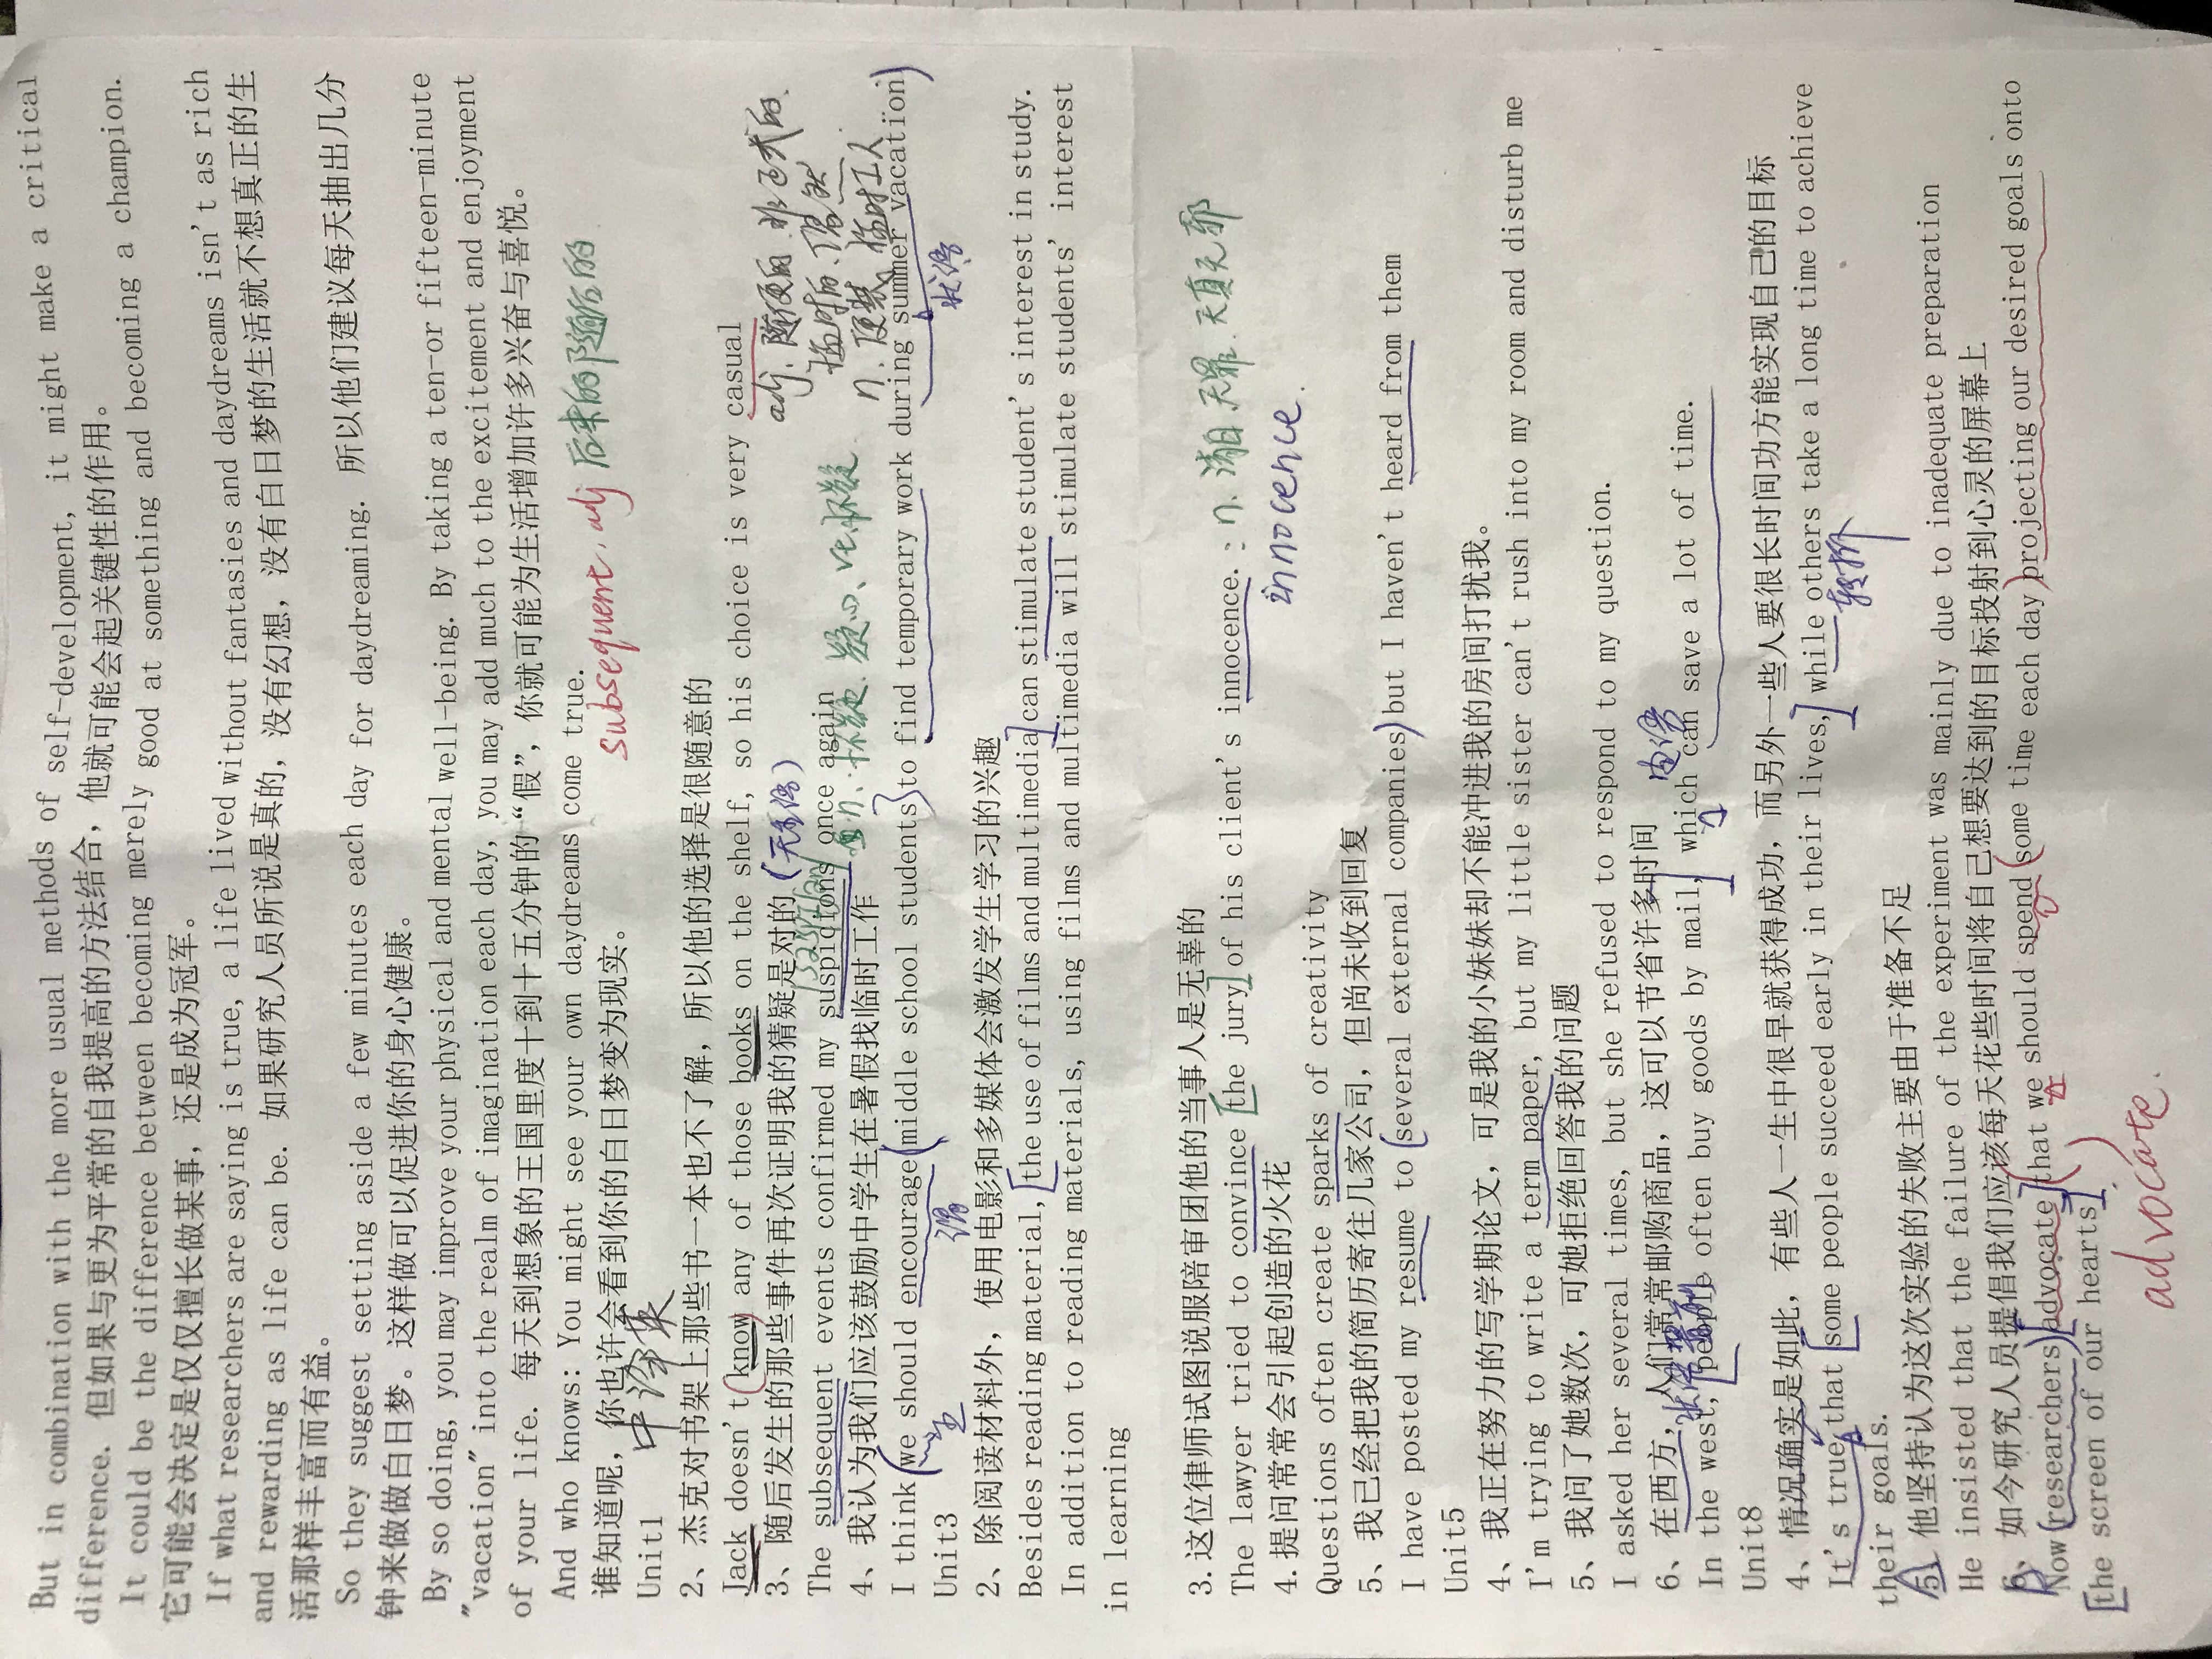 But in combination with the more usual methods of self-development, it might make a critical
difference. 但如果与更为平常的自我提高的方法结合，他就可能会起关键性的作用。
It could be the difference between becoming merely good at something and becoming a champion.
它可能会决定是仅仅擅长做某事，还是成为冠军。
If what researchers are saying is true, a life lived without fantasies and daydreams isn't as rich
and rewarding as life can be. 如果研究人员所说是真的，没有幻想，没有白日梦的生活就不想真正的生
活那样丰富而有益。
So they suggest setting aside a few minutes each day for daydreaming. 所以他们建议每天抽出几分
钟来做做白日梦。这样做可以促进你的身心健康。
By so doing, you may improve your physical and mental well-being. By taking a ten-or fifteen-minute
"vacation" into the realm of imagination each day, you may add much to the excitement and enjoyment
of your life. 每天到想象的王国里度十到十五分钟的“假”，你就可能为生活增加许多兴奋与喜悦。
And who knows: You might see your own daydreams come true.
谁知道呢，你也许会看到你的白日梦变为现实。
subsequent. adj 后来的 随后的
Unit1
中译英
2、杰克对书架上那些书一本也不了解，所以他的选择是很随意的
Jack doesn't know any of those books on the shelf, so his choice is very casual
adj. 随便的 非正式的
临时的、偶然
n. 便装 临时工人
3、随后发生的那些事件再次证明我的猜疑是对的
The subsequent events confirmed my suspicions once again
n. 怀疑、疑心、vt. 怀疑
4、我认为我们应该鼓励中学生在暑假找临时工作
I think we should encourage middle school students to find temporary work during summer vacation
主
谓
状语
Unit3
2、除阅读材料外，使用电影和多媒体会激发学生学习的兴趣
Besides reading material, the use of films and multimedia can stimulate student's interest in study.
In addition to reading materials, using films and multimedia will stimulate students' interest
in learning
3.这位律师试图说服陪审团他的当事人是无辜的
The lawyer tried to convince the jury of his client's innocence. : n. 清白 无罪. 天真无邪
innocence.
4.提问常常会引起创造的火花
Questions often create sparks of creativity
5、我已经把我的简历寄往几家公司，但尚未收到回复
I have posted my resume to several external companies but I haven't heard from them
Unit5
4、我正在努力的写学期论文，可是我的小妹妹却不能冲进我的房间打扰我。
I'm trying to write a term paper, but my little sister can't rush into my room and disturb me
5、我问了她数次，可她拒绝回答我的问题
I asked her several times, but she refused to respond to my question.
6、在西方，人们常常邮购商品，这可以节省许多时间
In the west, people often buy goods by mail, which can save a lot of time.
Unit8
4、情况确实是如此，有些人一生中很早就获得成功，而另外一些人要很长时间功方能实现自己的目标
It's true that some people succeed early in their lives, while others take a long time to achieve
their goals.
转折
5、他坚持认为这次实验的失败主要由于准备不足
He insisted that the failure of the experiment was mainly due to inadequate preparation
6、如今研究人员提倡我们应该每天花些时间将自己想要达到的目标投射到心灵的屏幕上
Now researchers advocate that we should spend some time each day projecting our desired goals onto
the screen of our hearts.
advocate.